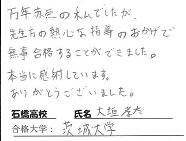 万年赤点の私でしたが、
先生方の熱心な指導のおかげで
無事合格することができました。
本当に感謝しています。
ありがとうございました。
石橋高校 氏名 大垣
合格大学: 茨城大学